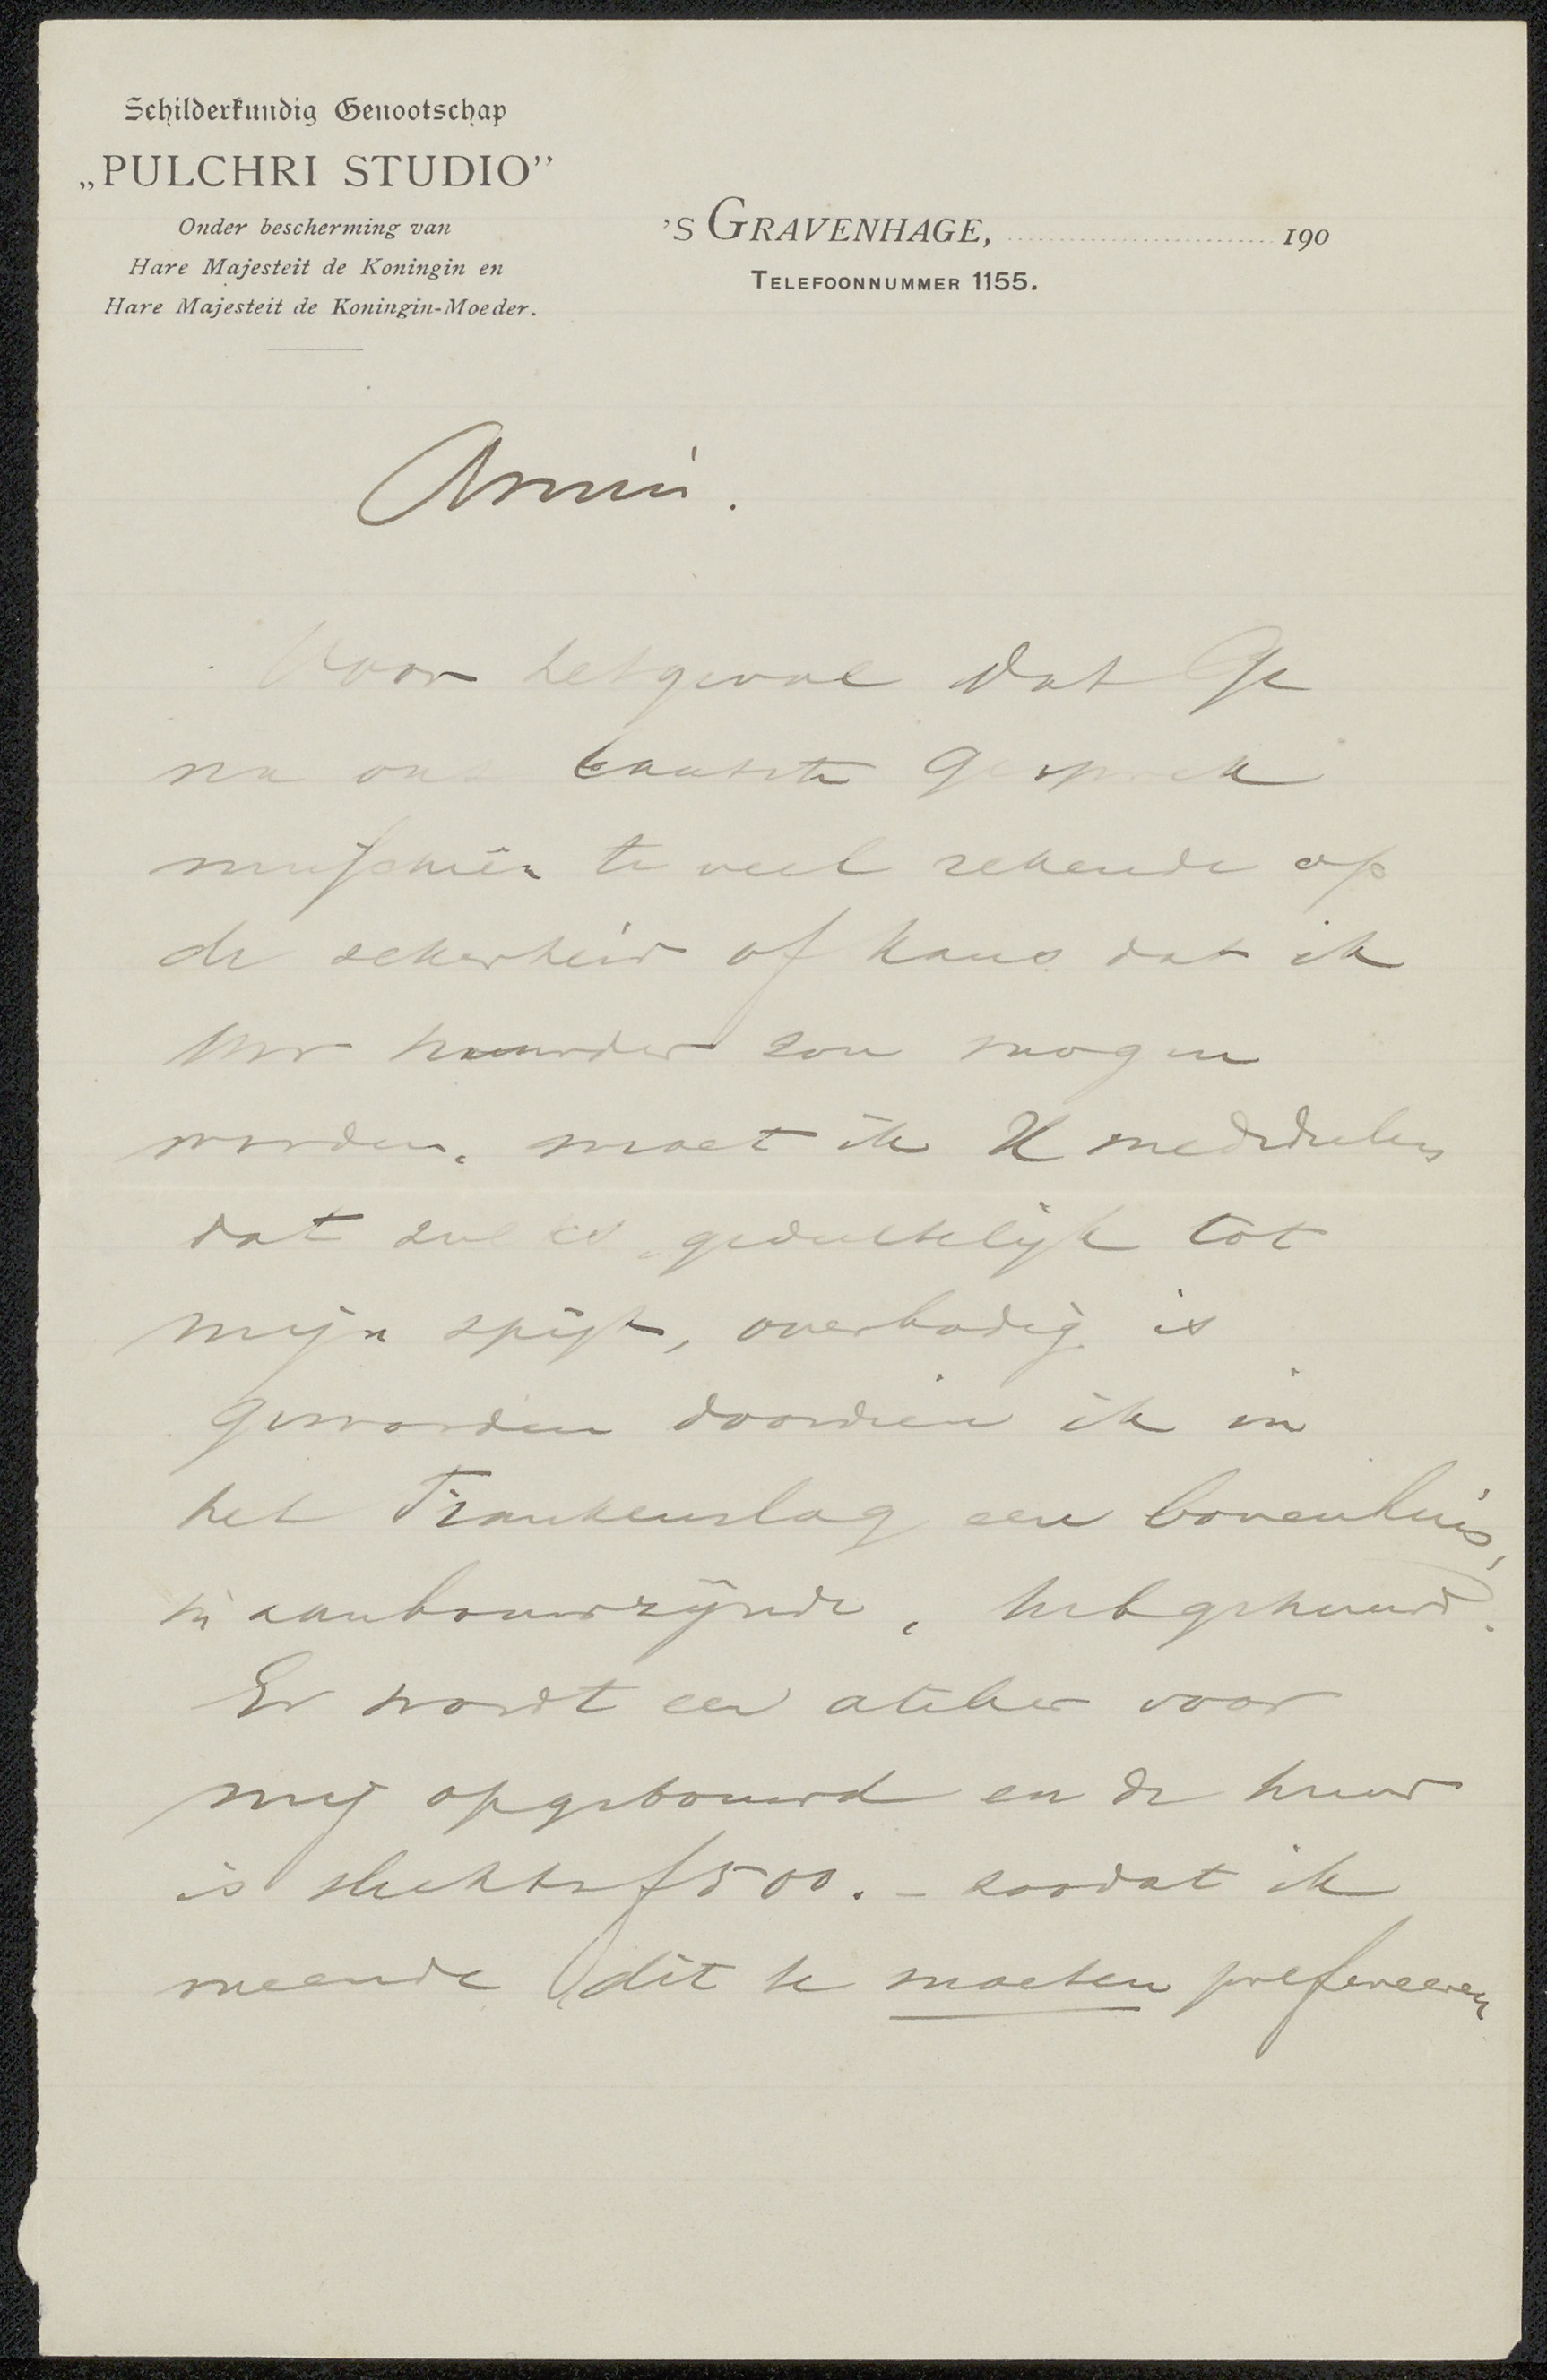 Schilderkundig Genootschap
„PULCHRI STUDIO”
Onder bescherming van
Hare Majesteit de Koningin en
Hare Majesteit de Koningin-Moeder.
'S GRAVENHAGE, 190
TELEFOONNUMMER 1155.
Amice.
Voor het geval dat Ge
na ons laatste gesprek
misschien te veel rekende op
de zekerheid of kans dat ik
Uw huurder zou mogen
worden, moet ik U mededeelen
dat zulks gedeeltelijk tot
mijn spijt, overbodig is
geworden doordien ik in
het Frankenslag een bovenhuis,
in aanbouw zijnde, heb gehuurd.
Er wordt een atelier voor
mij opgebouwd en de huur
is slechts f 500.- zoodat ik
meende dit te moeten prefereeren